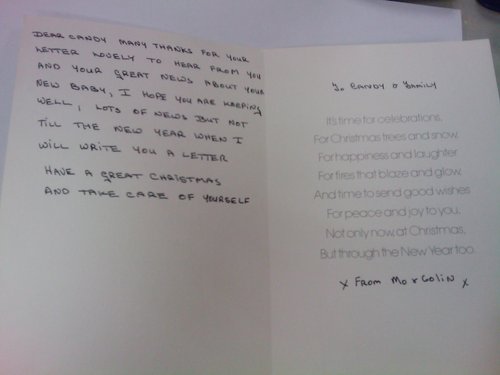 DEAR CANDY MANY THANKS FOR YOUR
LETTER LOVELY TO HEAR FROM YOU
AND YOUR GREAT NEWS ABOUT YOUR
NEW BABY, I HOPE YOU ARE KEEPING
WELL, LOTS OF NEWS BUT NOT
TILL THE NEW YEAR WHEN I
WILL WRITE YOU A LETTER
HAVE A GREAT CHRISTMAS
AND TAKE CARE OF YOURSELF
To CANDY & FAMILY
It's time for celebrations,
For Christmas trees and snow,
For happiness and laughter
For fires that blaze and glow,
And time to send good wishes
For peace and joy to you,
Not only now, at Christmas,
But through the New Year too...
x FROM MO & COLIN x